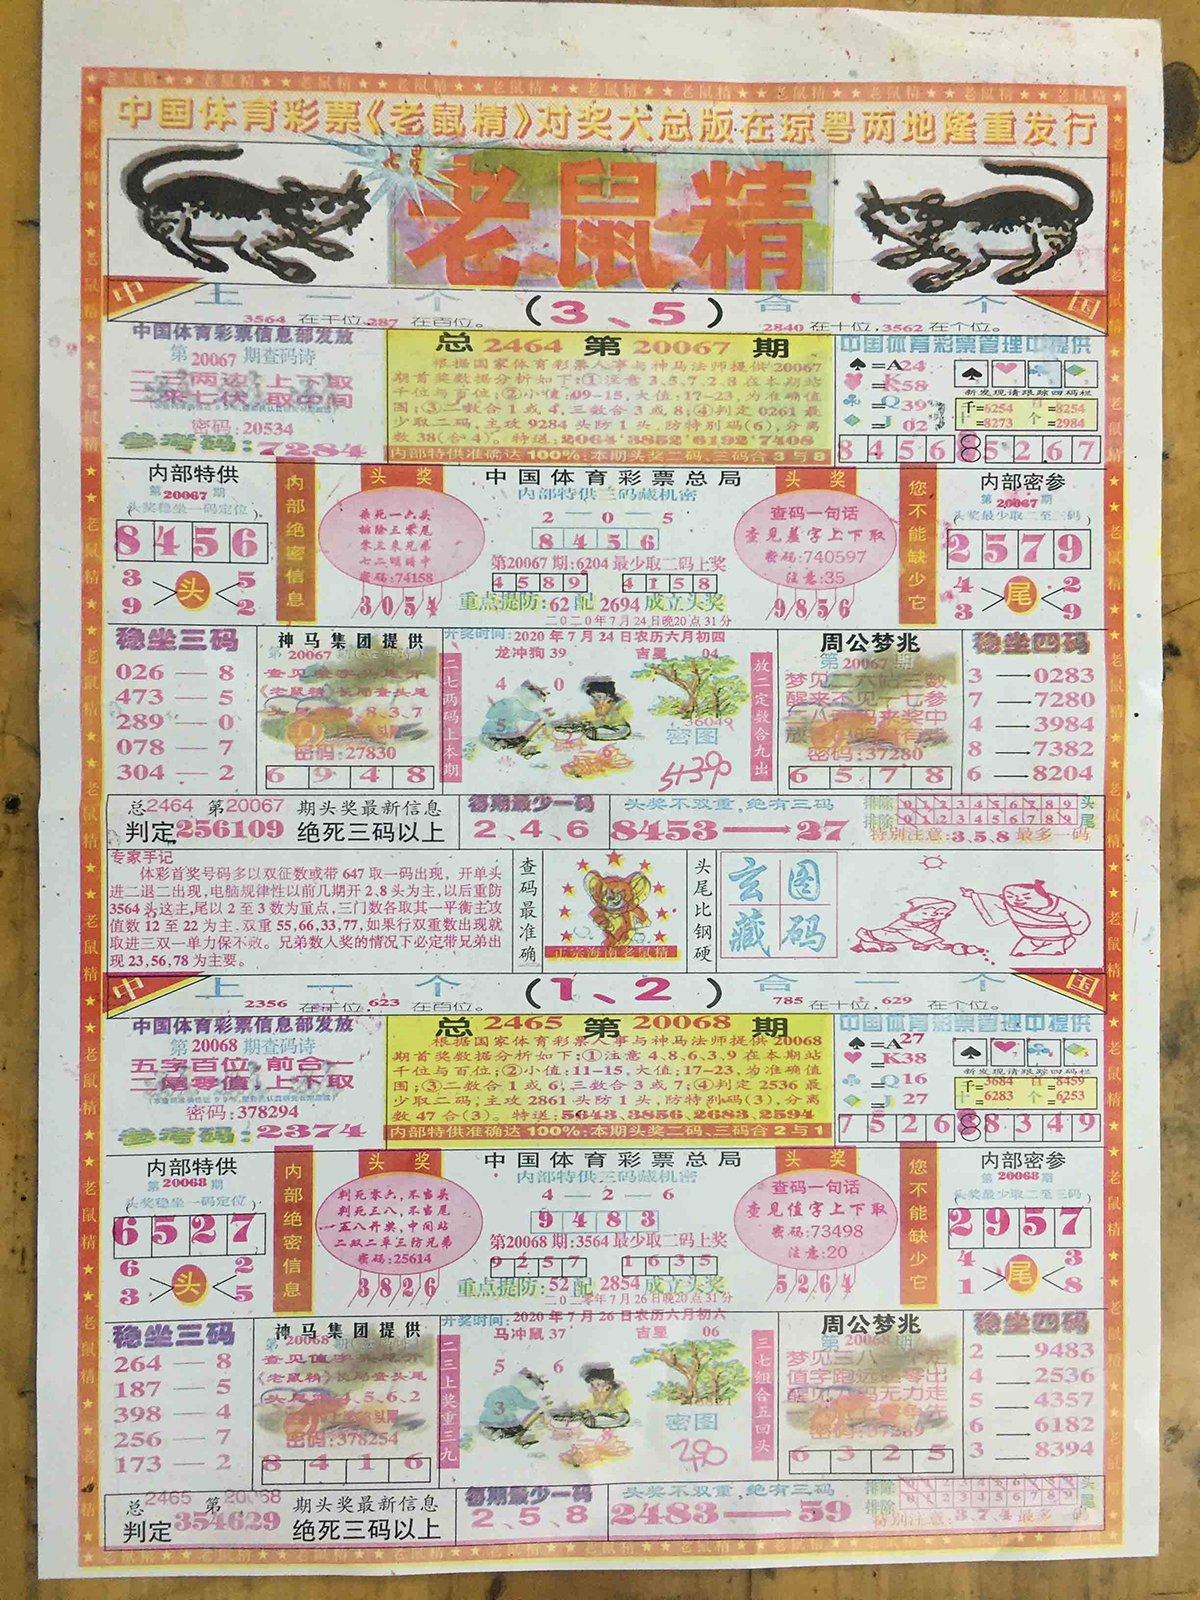 中国体育彩票《老鼠精》对奖大总版在琼粤两地隆重发行
七星
老鼠精
中
国
上一个(3、5)合一个
3564 在千位,287 在百位。
2840在十位,3562在个位。
中国体育彩票信息部发放
第20067期查码诗
密码:20534
参考码:7284
总2464第20067期
根据国家体育彩票人事与神马法师提供20067
期首奖数据分析如下:①注意3,5,7,2,8在本期站
千位与百位;②小值:09-15,大值:17-23,为准确值
围;③二数合1或4,三数合3或8;④判定0261最
少取二码,主攻9284头防1头,防特别码(6),分离
数38(合4)。特送:2064,3852,6192,7408
内部特供准确达100%:本期头奖二码、三码合3与8
中国体育彩票管理中提供
♠=A24
♥=K58
♣=Q39
♦=J02
新发现请跟踪四码栏
千=6254 百=8254
十=8273 个=2984
8 4 5 6 8 5 2 6 7
内部特供
第20067期
头奖稳坐一码定位
8 4 5 6
3 9 头 5 2
内部绝密信息
头奖
杀死一六头
排除三零尾
零三来兄弟
七二明暗中
密码:74158
3/0/5/4
中国体育彩票总局
内部特供三码藏机密
2—0—5
8 4 5 6
第20067期:6204最少取二码上奖
4 5 8 9 4 1 5 8
重点提防:62配2694成立头奖
二〇二〇年7月24日晚20点31分
头奖
查码一句话
查见盖字上下取
密码:740597
注意:35
9/8/5/6
您不能缺少它
内部密参
第20067期
头奖最少取二至三码
2 5 7 9
4 3 尾 2 9
稳坐三码
026 — 8
473 — 5
289 — 0
078 — 7
304 — 2
神马集团提供
第20067期
《老鼠精》长局查头尾
密码:27830
6 9 4 8
开奖时间:2020年7月24日农历六月初四
龙冲狗39 吉星 04
二七两码上本期
4 0
5
6
36049
密图
5+390
放二定数合九出
周公梦兆
第20067期
梦见二六四三数
醒来不见一七参
密码:37280
6 5 7 8
稳坐四码
3 → 0283
7 → 7280
4 → 3984
8 → 7382
6 → 8204
总2464 第20067 期头奖最新信息
判定256109 绝死三码以上
每期最少一码
2、4、6
头奖不双重,绝有三码
8453→27
排除 0 1 2 3 4 5 6 7 8 9 头
排除 0 1 2 3 4 5 6 7 8 9 尾
特别注意:3,5,8最多一码
专家手记
体彩首奖号码多以双征数或带647取一码出现,开单头
进二退二出现,电脑规律性以前几期开2、8头为主,以后重防
3564头这主,尾以2至3数为重点,三门数各取其一平衡主攻
值数12至22为主,双重55,66,33,77,如果行双重数出现就
取进三双一单力保不败。兄弟数人奖的情况下必定带兄弟出
现23,56,78为主要。
查码最准确
正宗海南老鼠精
头尾比钢硬
玄图
藏码
中
国
上一个(1、2)合一个
2356 在千位,623 在百位。
785在十位,629 在个位。
中国体育彩票信息部发放
第20068期查码诗
五字百位 前合一
二尾零值 上下取
密码:378294
参考码:2374
总2465第20068期
根据国家体育彩票人事与神马法师提供20068
期首奖数据分析如下:①注意4,8,6,3,9在本期站
千位与百位;②小值:11-15,大值:17-23,为准确值
围;③二数合1或6,三数合3或7;④判定2536最
少取二码,主攻2861头防1头,防特别码(3),分离
数47合(3)。特送:5643,3856,2683,2594
内部特供准确达100%:本期头奖二码、三码合2与1
中国体育彩票管理中提供
♠=A27
♥=K38
♣=Q16
♦=J27
新发现请跟踪四码栏
千=3684 百=8459
十=6283 个=6253
7 5 2 6 8 8 3 4 9
内部特供
第20068期
头奖稳坐一码定位
6 5 2 7
6 3 头 2 5
内部绝密信息
头奖
判死零六,不当头
判死三八,不当尾
一五八开奖,中间站
二双二单三防兄弟
密码:25614
3/8/2/6
中国体育彩票总局
内部特供三码藏机密
4—2—6
9 4 8 3
第20068期:3564最少取二码上奖
9 2 5 7 1 6 3 5
重点提防:52配2854成立头奖
二〇二零年7月26日晚20点31分
头奖
查码一句话
查见值字上下取
密码:73498
注意:20
5/2/6/4
您不能缺少它
内部密参
第20068期
头奖最少取二至三码
2 9 5 7
4 1 尾 3 8
稳坐三码
264 — 8
187 — 5
398 — 4
256 — 7
173 — 2
神马集团提供
第20068期
《老鼠精》长局查头尾
密码:378254
8 4 1 6
开奖时间:2020年7月26日农历六月初六
马冲鼠37 吉星 06
二三上奖重三九
5 6
3
密图
290
三七组合五回头
周公梦兆
第20068期
6 3 2 5
稳坐四码
2 → 9483
4 → 2536
5 → 4357
6 → 6182
3 → 8394
总2465 第20068 期头奖最新信息
判定354629 绝死三码以上
每期最少一码
2、5、8
头奖不双重,绝有三码
2483→59
排除 0 1 2 3 4 5 6 7 8 9 头
排除 0 1 2 3 4 5 6 7 8 9 尾
特别注意:3,7,4最多一码